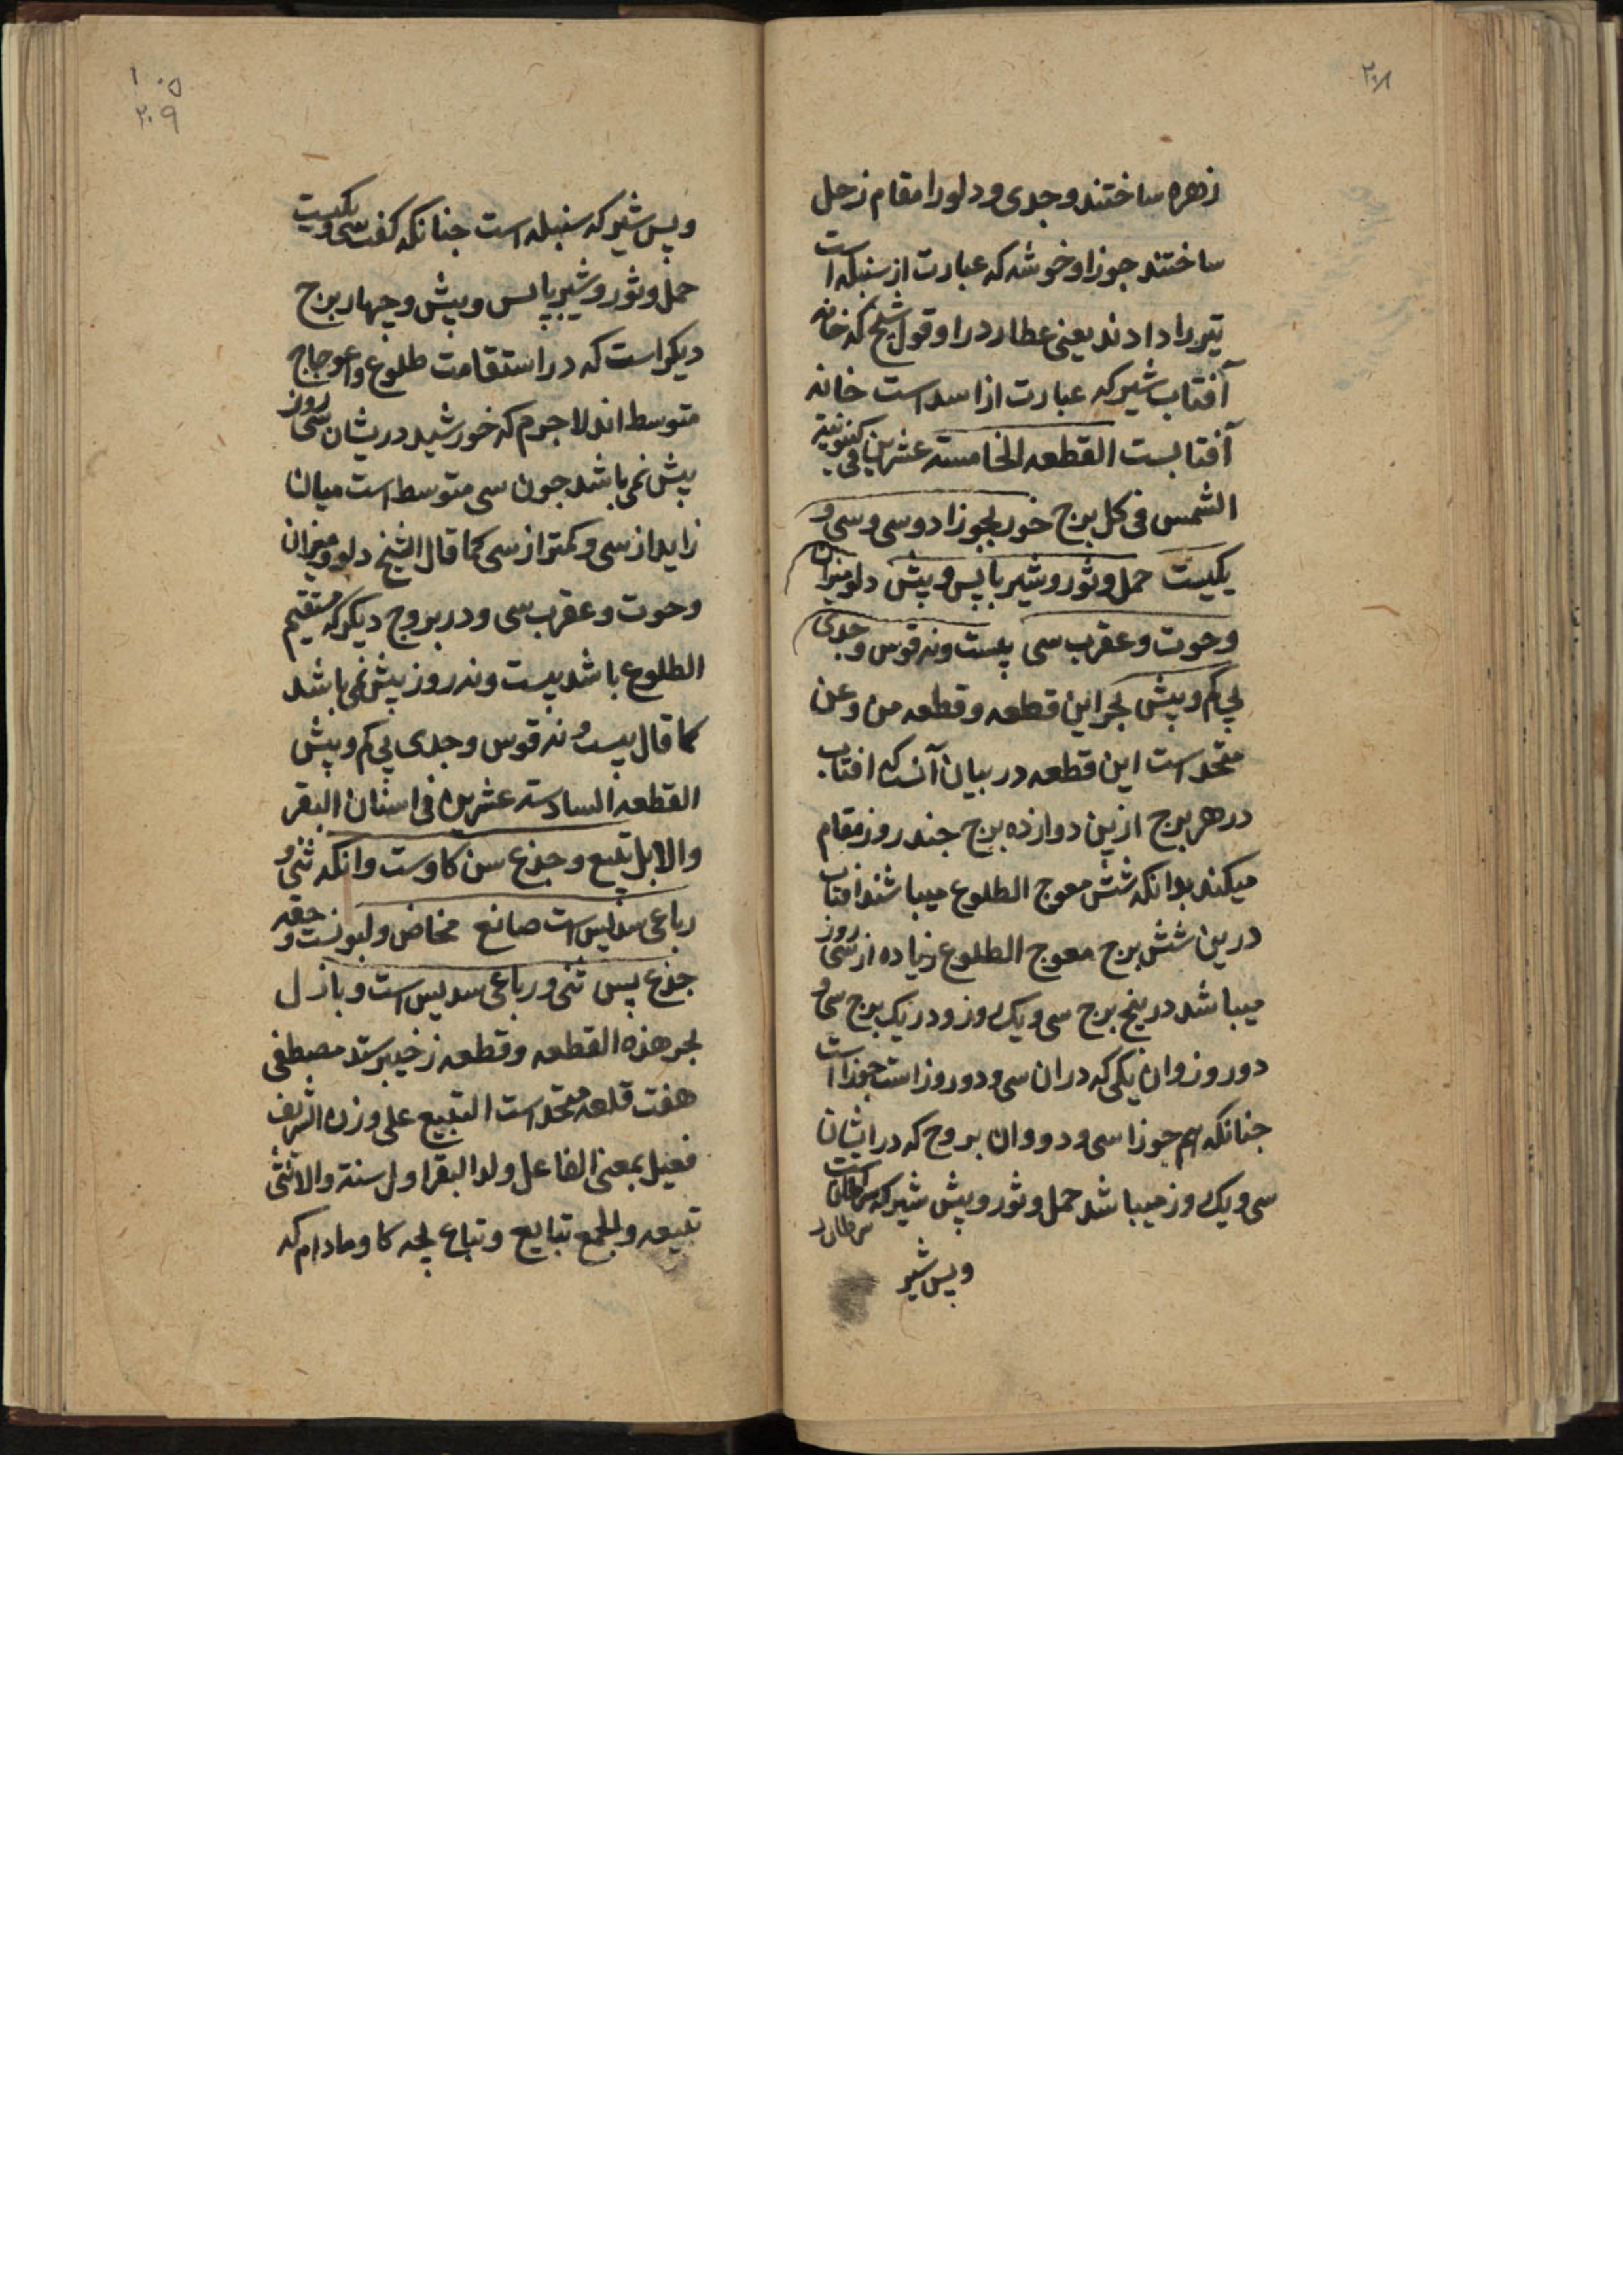 ۲۰۸
زهره ساختند وجدی و دلو را مقام زحل
ساختند جوزا و خوشه که عبارت از سنبله است
تیر را دادند یعنی عطارد را و قول شیخ که خانه
آفتاب شیر که عبارت از اسد است خانه
آفتابست القطعه الخامسة عشرین فی کینونیة
الشمس فی کل برج خور بجوزا دو سی و سی و
یکیست حمل و ثور و شیر با پس و پیش دلو میزان
و حوت و عقرب سی بیست و نه قوس و جدی
بی کم و بیش بحر این قطعه و قطعه من و عن
متحد است این قطعه در بیان آنست که افتاب
در هر برج ازین دوازده برج جند روز مقام
میکند بدانکه شش معوج الطلوع میباشند افتاب
درین شش برج معوج الطلوع زیاده از سی روز
میباشد در پنج برج سی و یک روز و در یک برج سی و
دو روز وان یکی که دران سی و دو روز است جوزا است
جنانکه هم جوزا سی و دو وان بروج که در ایشان
سی و یک روز میباشد حمل و ثور و پیش شیر که سرطان است
سرطان
و پس شیر
۱۰۵
۲۰۹
و پس شیر که سنبله است جنانکه کفت سی و یکیست
حمل و ثور و شیر با پس و پیش و چهار برج
دیکر است که در استقامت طلوع و اعوجاج
متوسط اند لاجرم که خورشید دریشان سی روز
بیش نمی باشد جون سی متوسط است میان
زاید از سی و کمتر از سی کما قال الشیخ دلو و میزان
و حوت و عقرب سی و در بروج دیکر که مستقیم
الطلوع باشد بیست و نه روز بیش نمی باشد
کما قال بیست و نه قوس و جدی بی کم و بیش
القطعه السادسة عشرین فی اسنان البقر
والابل تبیع و جذع سن کاوست وانکه ثنی و
رباعی سدیس است صانع مخاض و لبونست و حقه
جذع پس ثنی و رباعی سدیس است و باذل
بحر هذه القطعه و قطعه ز خیبر ستد مصطفی
هفت قلعه متحد است التبیع علی وزن الشریف
فعیل بمعنی الفاعل ولد البقر اول سنة والانثی
تبیعه والجمع تبایع و تباع بچه کاو مادام که